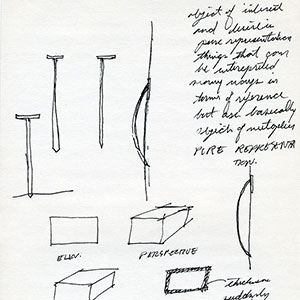 object of interest
and desire is
pure representation
things that can
be interepted
many ways in
terms of reference
but are basically
objects of
PURE REPRESENTA
TION.
ELEV.
PERSPECTIVE
thickness
suddenly